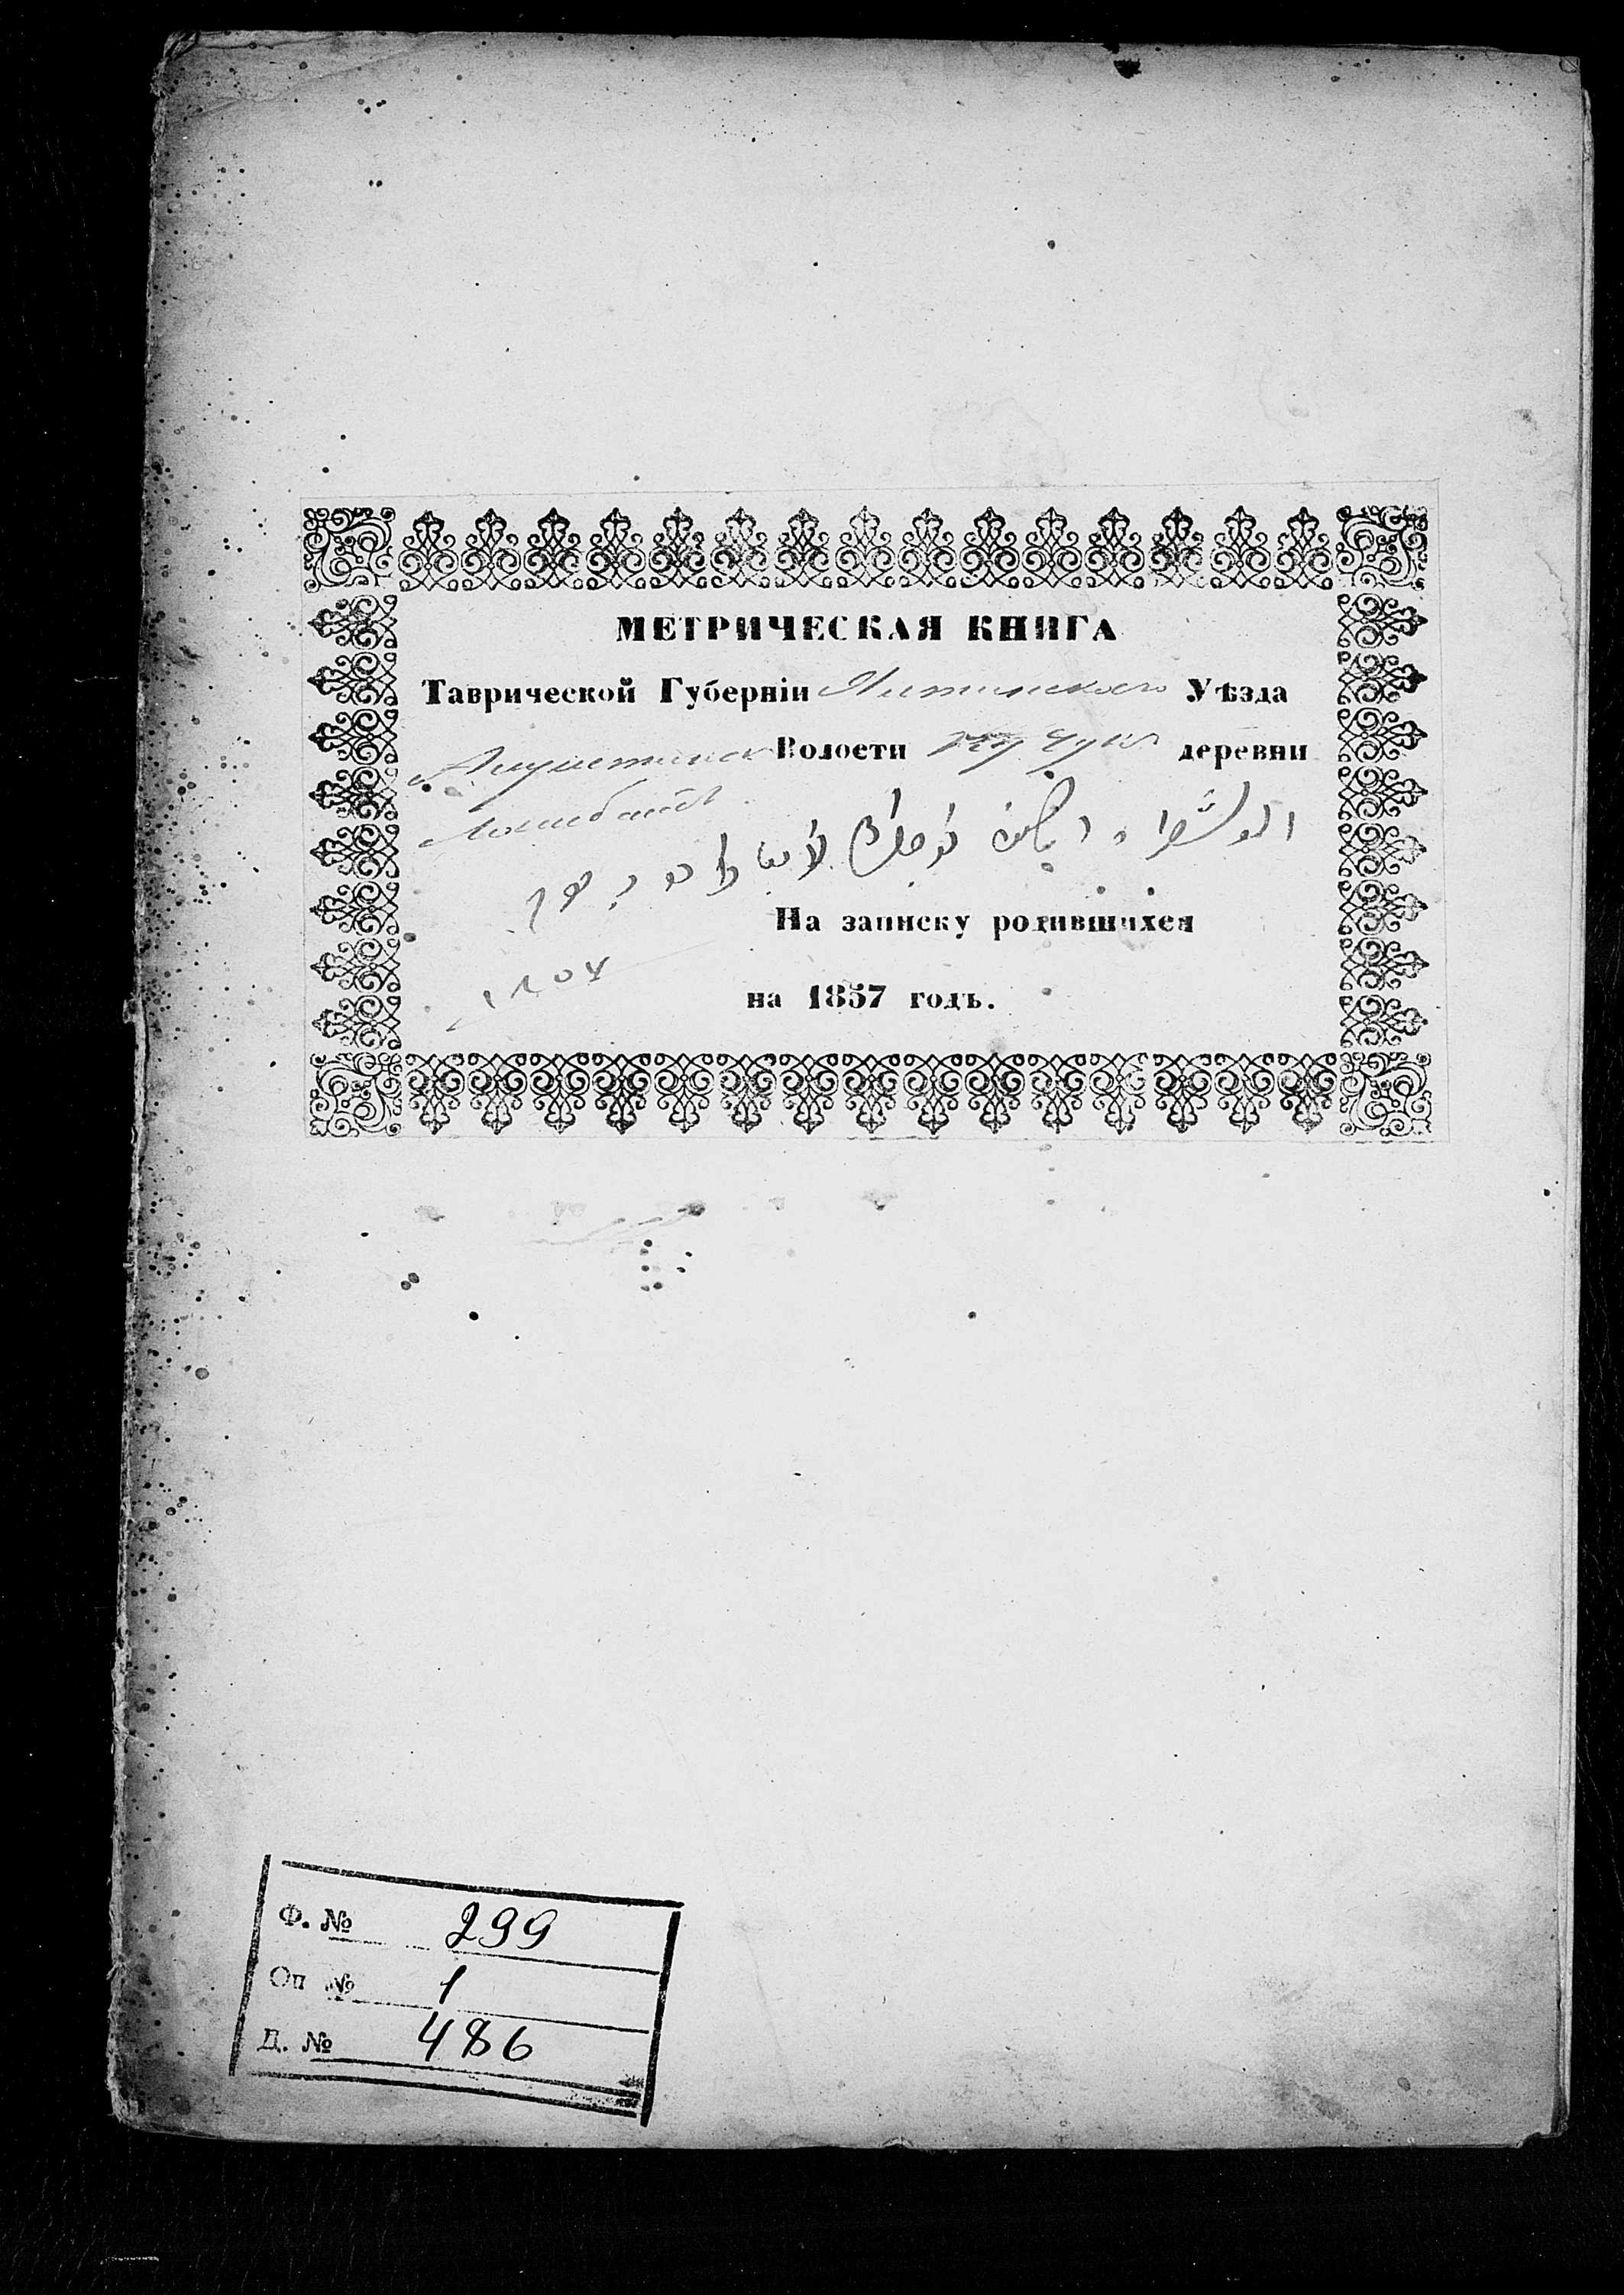 МЕТРИЧЕСКАЯ КНИГА
Таврической Губерніи Ялтинскаго Уѣзда
Алуштинск Волости Кучукъ деревни
Ламбатъ
На записку родившихся
١٨٥٧
на 1857 годъ.
Ф. № 299
Оп № 1
Д. № 486